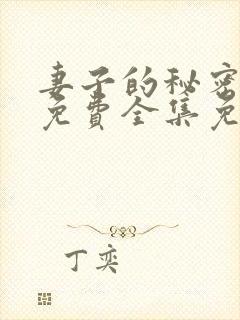 妻子的秘密
免費全集免
丁奕